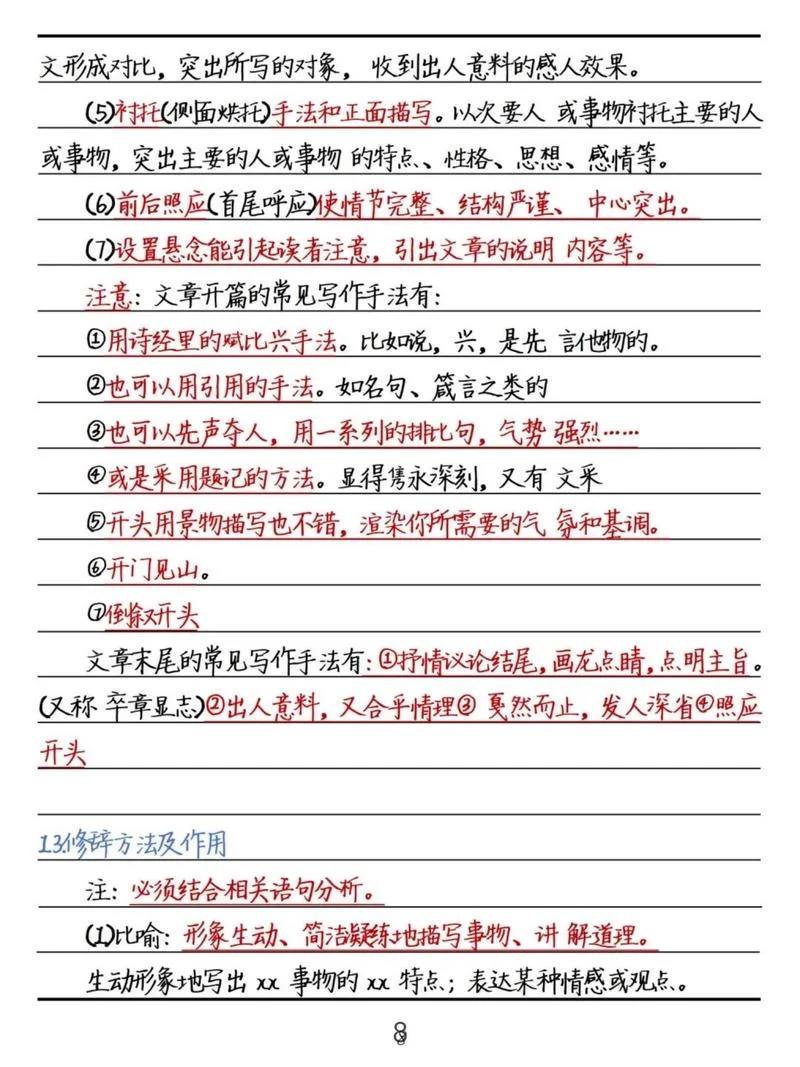 文形成对比，突出所写的对象， 收到出人意料的感人效果。
(5)衬托(侧面烘托)手法和正面描写。以次要人 或事物衬托主要的人
或事物，突出主要的人或事物 的特点、性格、思想、感情等。
(6)前后照应(首尾呼应)使情节完整、结构严谨、 中心突出。
(7)设置悬念能引起读者注意，引出文章的说明 内容等。
注意：文章开篇的常见写作手法有：
①用诗经里的赋比兴手法。比如说，兴，是先 言他物的。
②也可以用引用的手法。如名句、箴言之类的
③也可以先声夺人，用一系列的排比句，气势 强烈……
④或是采用题记的方法。显得隽永深刻，又有 文采
⑤开头用景物描写也不错，渲染你所需要的气 氛和基调。
⑥开门见山。
⑦倒叙开头
文章末尾的常见写作手法有：①抒情议论结尾，画龙点睛，点明主旨。
(又称 卒章显志)②出人意料，又合乎情理③ 戛然而止，发人深省④照应
开头
13.修辞方法及作用
注： 必须结合相关语句分析。
(1)比喻： 形象生动、简洁凝练地描写事物、讲 解道理。
生动形象地写出 xx 事物的 xx 特点；表达某种情感或观点。